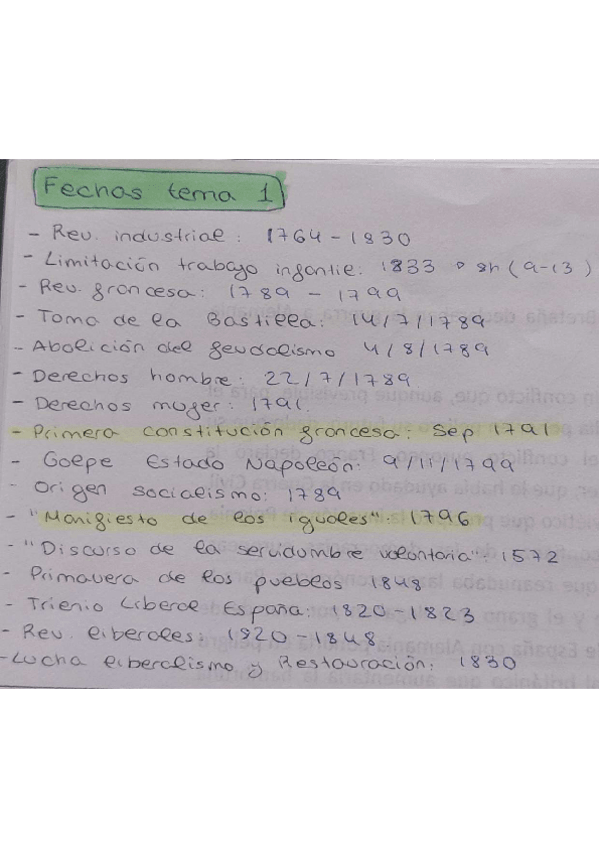 Fechas tema 1
- Rev. industrial: 1764-1830
- Limitación trabajo infantil: 1833 8h (9-13)
- Rev. francesa: 1789 - 1799
- Toma de la Bastilla: 14/7/1789
- Abolición del feudalismo 4/8/1789
- Derechos hombre: 22/7/1789
- Derechos muger: 1791.
- Primera constitución francesa: Sep 1791
- Golpe Estado Napoleón: 9/11/1799
- Origen socialismo: 1789
- "Manifiesto de los iguales": 1796
- "Discurso de la servidumbre voluntaria": 1572
- Primavera de los pueblos 1848
- Trienio Liberal España: 1820-1823
- Rev. liberales: 1820-1848
- Lucha liberalismo y Restauración: 1830